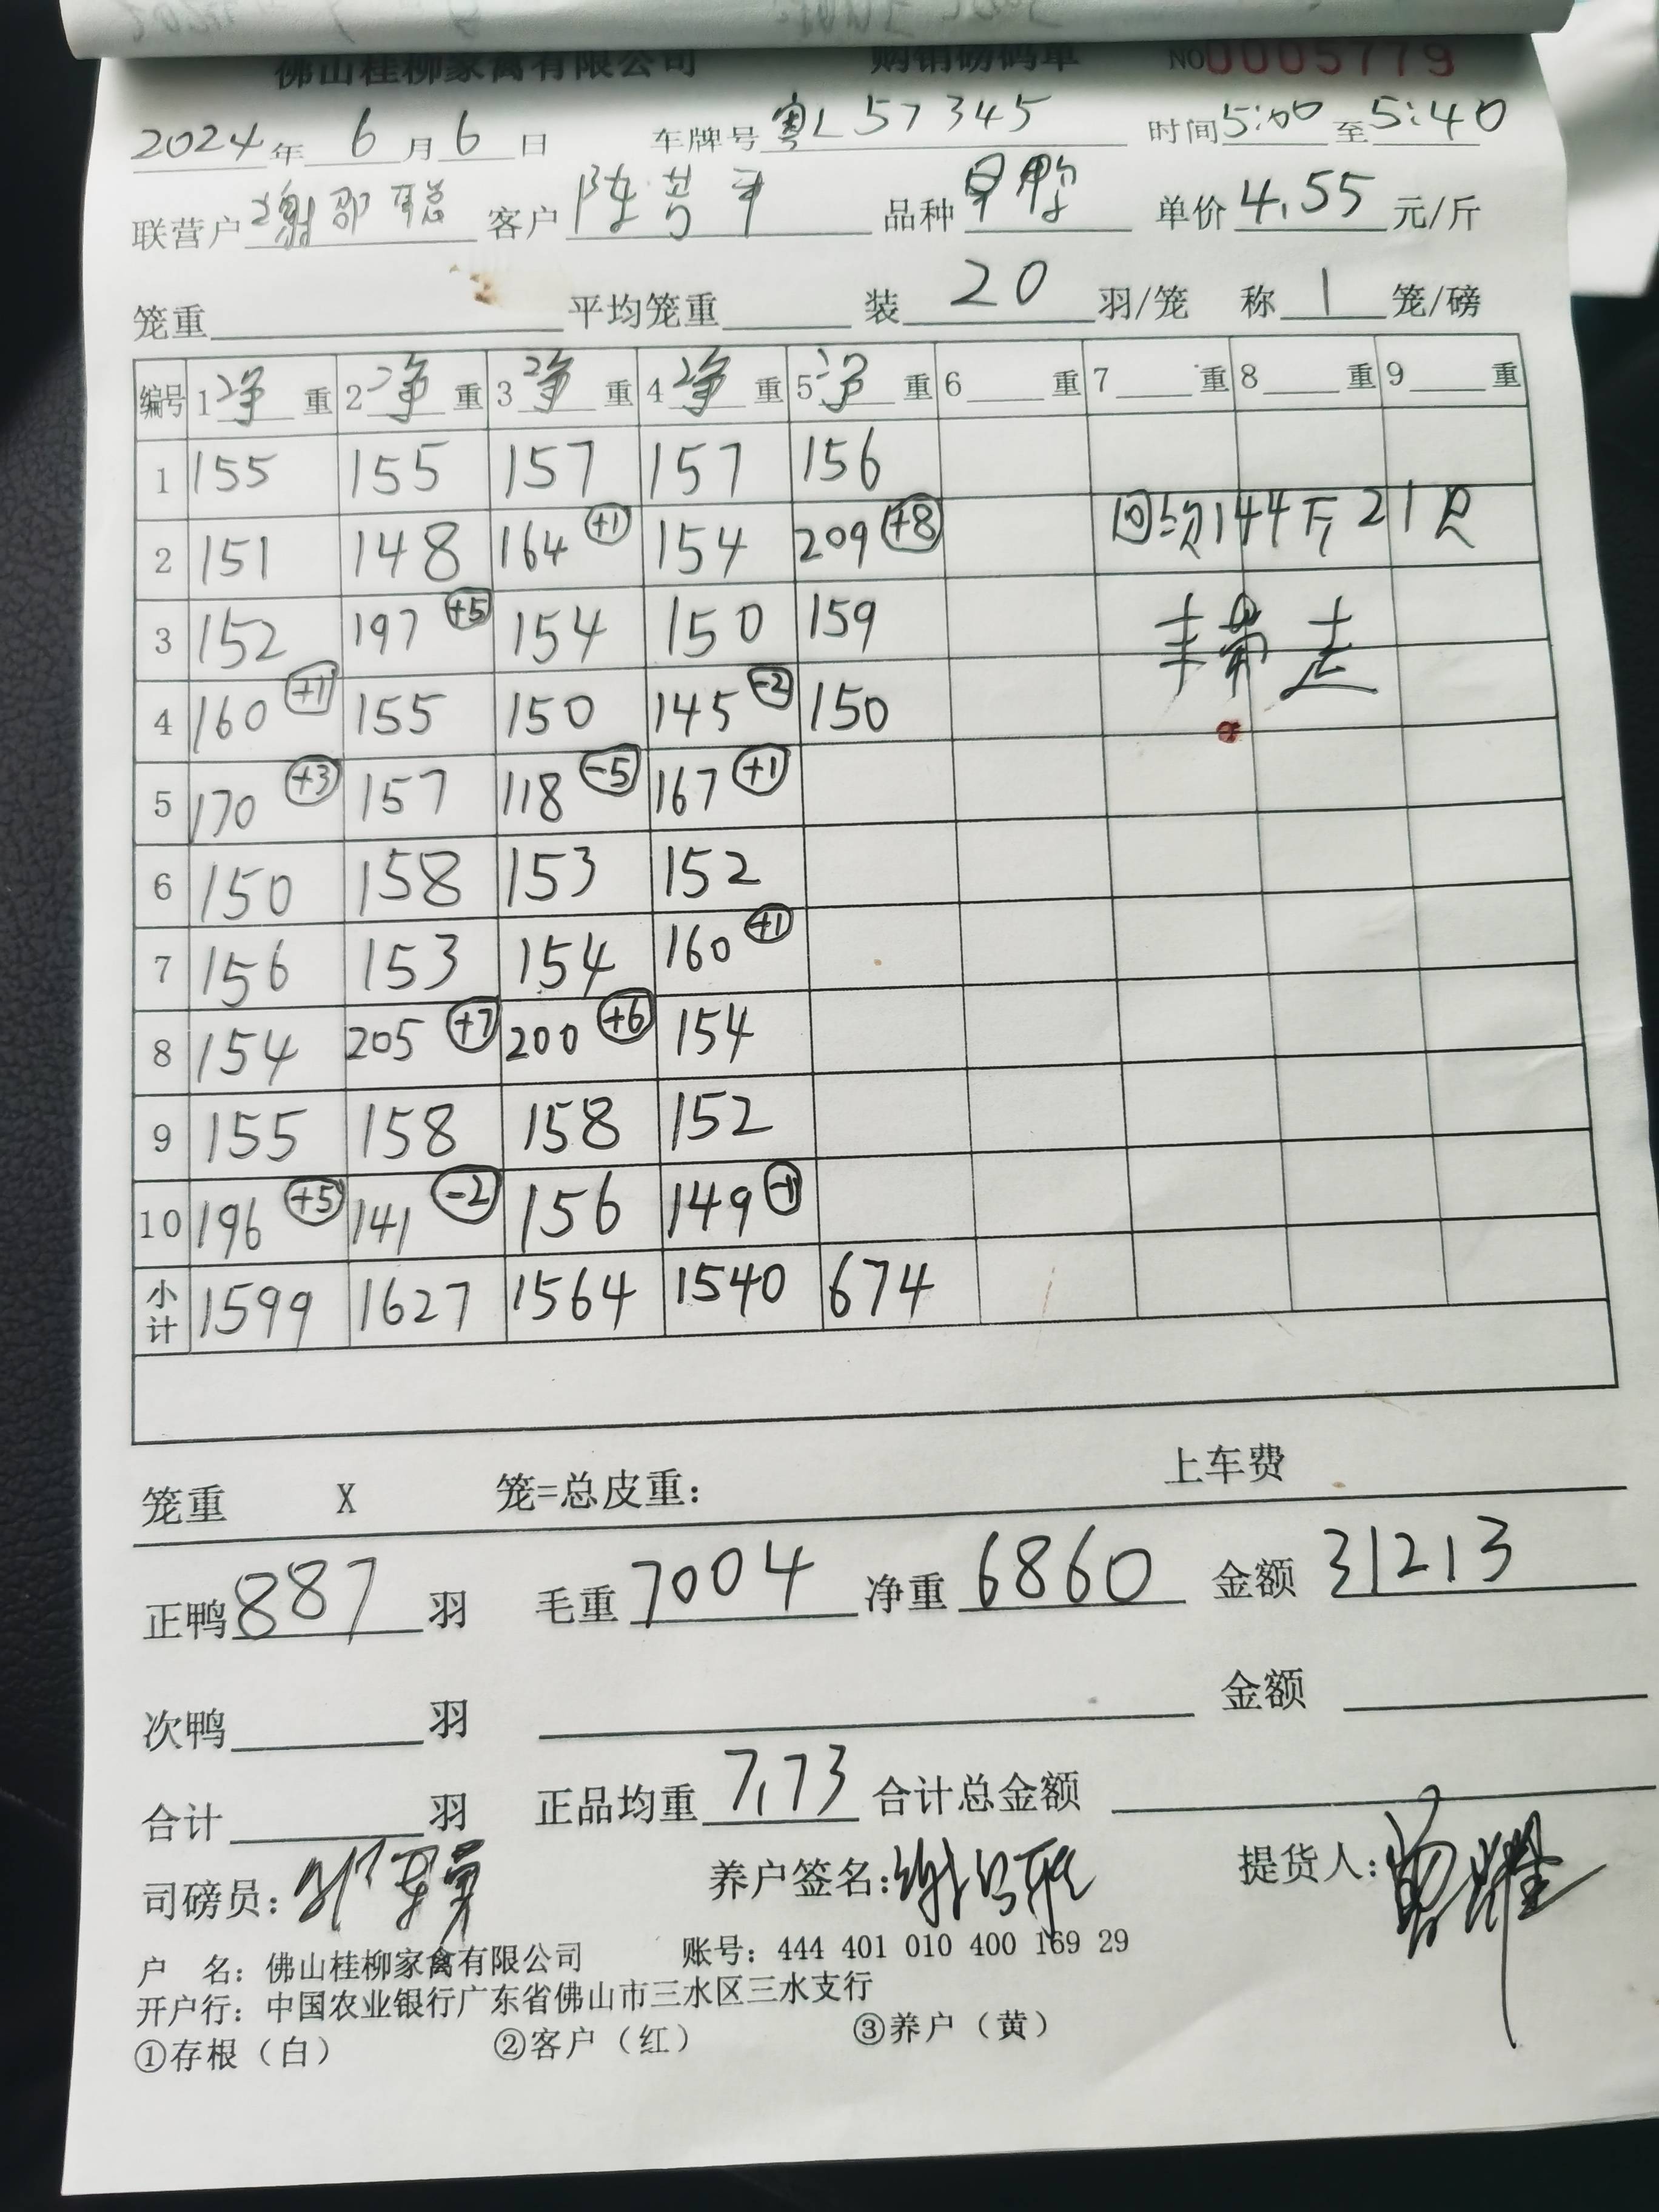 佛山桂柳家禽有限公司 购销磅码单 NO0005779
2024年 6 月 6 日 车牌号 粤L57345 时间 5:00 至 5:40
联营户 谢邵聪 客户 陈 平 品种 旱鸭 单价 4.55 元/斤
笼重 平均笼重 装 20 羽/笼 称 1 笼/磅
编号 1 净 重 2 净 重 3 净 重 4 净 重 5 净 重 6 重 7 重 8 重 9 重
1 155 155 157 157 156
2 151 148 164 +1 154 209 +8 回欠144斤21只
3 152 197 +5 154 150 159 走
4 160 +1 155 150 145 -2 150
5 170 +3 157 118 -5 167 +1
6 150 158 153 152
7 156 153 154 160 +1
8 154 205 +7 200 +6 154
9 155 158 158 152
10 196 +5 141 -2 156 149 -1
小计 1599 1627 1564 1540 674
笼重 X 笼=总皮重: 上车费
正鸭 887 羽 毛重 7004 净重 6860 金额 31213
次鸭 羽 金额
合计 羽 正品均重 7.73 合计总金额
司磅员: 养户签名: 提货人:
户 名: 佛山桂柳家禽有限公司 账号: 444 401 010 400 169 29
开户行: 中国农业银行广东省佛山市三水区三水支行
①存根（白） ②客户（红） ③养户（黄）